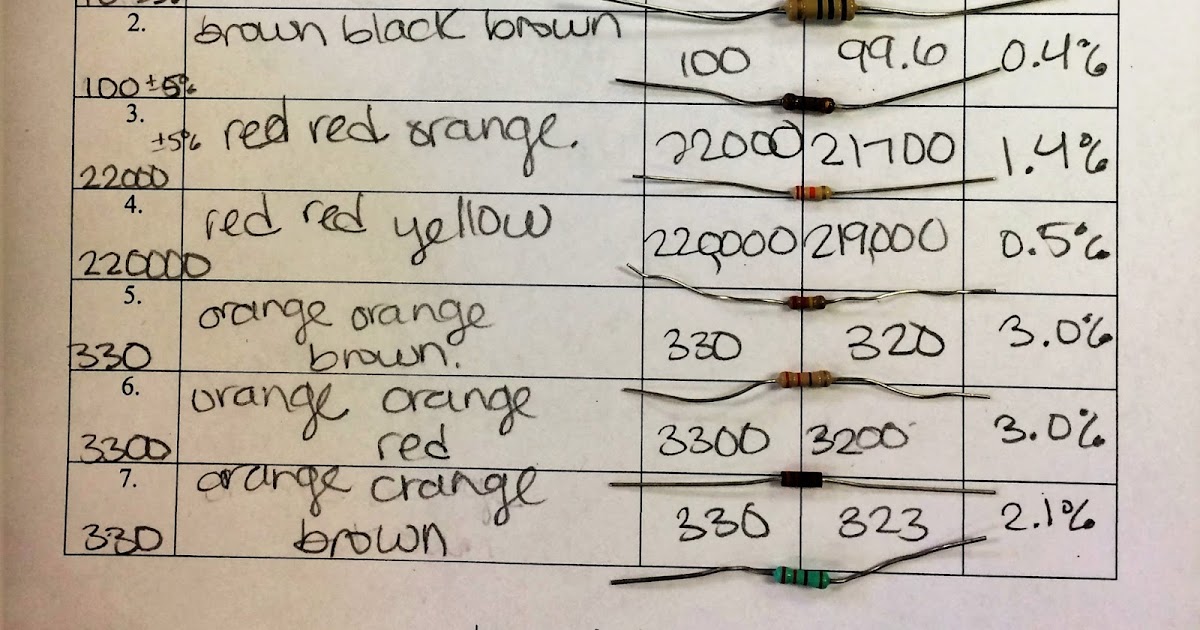 2. brown black brown
100 99.6 0.4%
100 ±5%
3.
±5% red red orange. 22000 21700 1.4%
22000
4. red red yellow
220000 220,000 219,000 0.5%
5. orange orange
330 brown. 330 320 3.0%
6. orange orange
3300 red 3300 3200 3.0%
7. orange orange
330 brown 330 323 2.1%